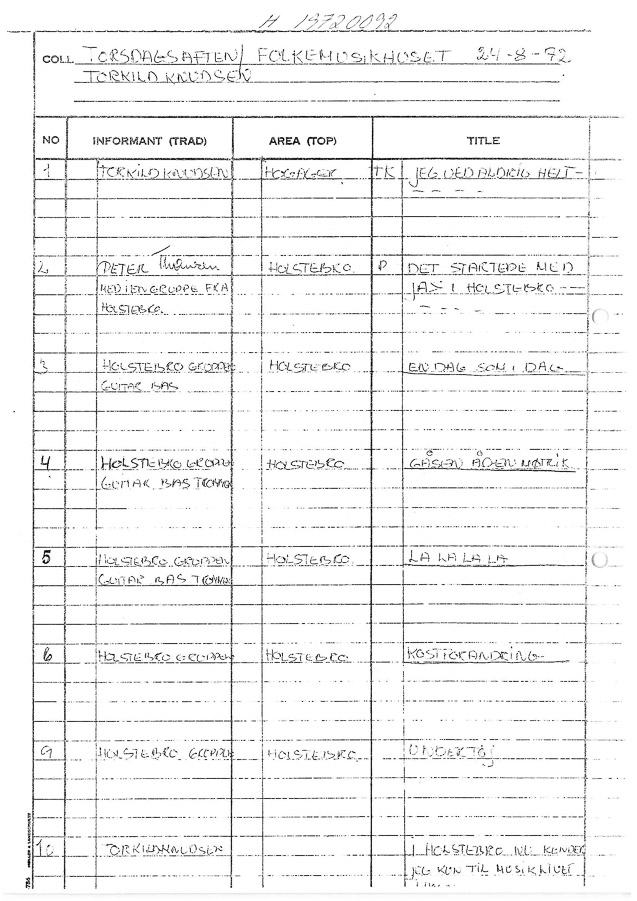 H 19720092
COLL TORSDAGSAFTEN/ FOLKEMUSIKHUSET 24-8-72
TORKILD KNUDSEN
NO INFORMANT (TRAD) AREA (TOP) TITLE
1 TORKILD KNUDSEN HOGAGER TK JEG VED ALDRIG HELT -
- - - -
2 PETER HOLSTEBRO P DET STARTEDE MED
MED EN GRUPPE FRA JAZZ I HOLSTEBRO - -
HOLSTEBRO. - - - -
3 HOLSTEBRO GRUPPEN HOLSTEBRO EN DAG SOM I DAG
GUITAR BAS
4 HOLSTEBRO GRUPPEN HOLSTEBRO GÅSEN ÅDEN MØTRIK
GUITAR BAS TROMME
5 HOLSTEBRO GRUPPEN HOLSTEBRO LA LA LA LA
GUITAR BAS TROMME
6 HOLSTEBRO GRUPPEN HOLSTEBRO KOSTFORANDRING
9 HOLSTEBRO GRUPPEN HOLSTEBRO UNDERTØJ
10 TORKILD KNUDSEN I HOLSTEBRO NU KENDER
JEG KUN TIL MUSIKLIVET